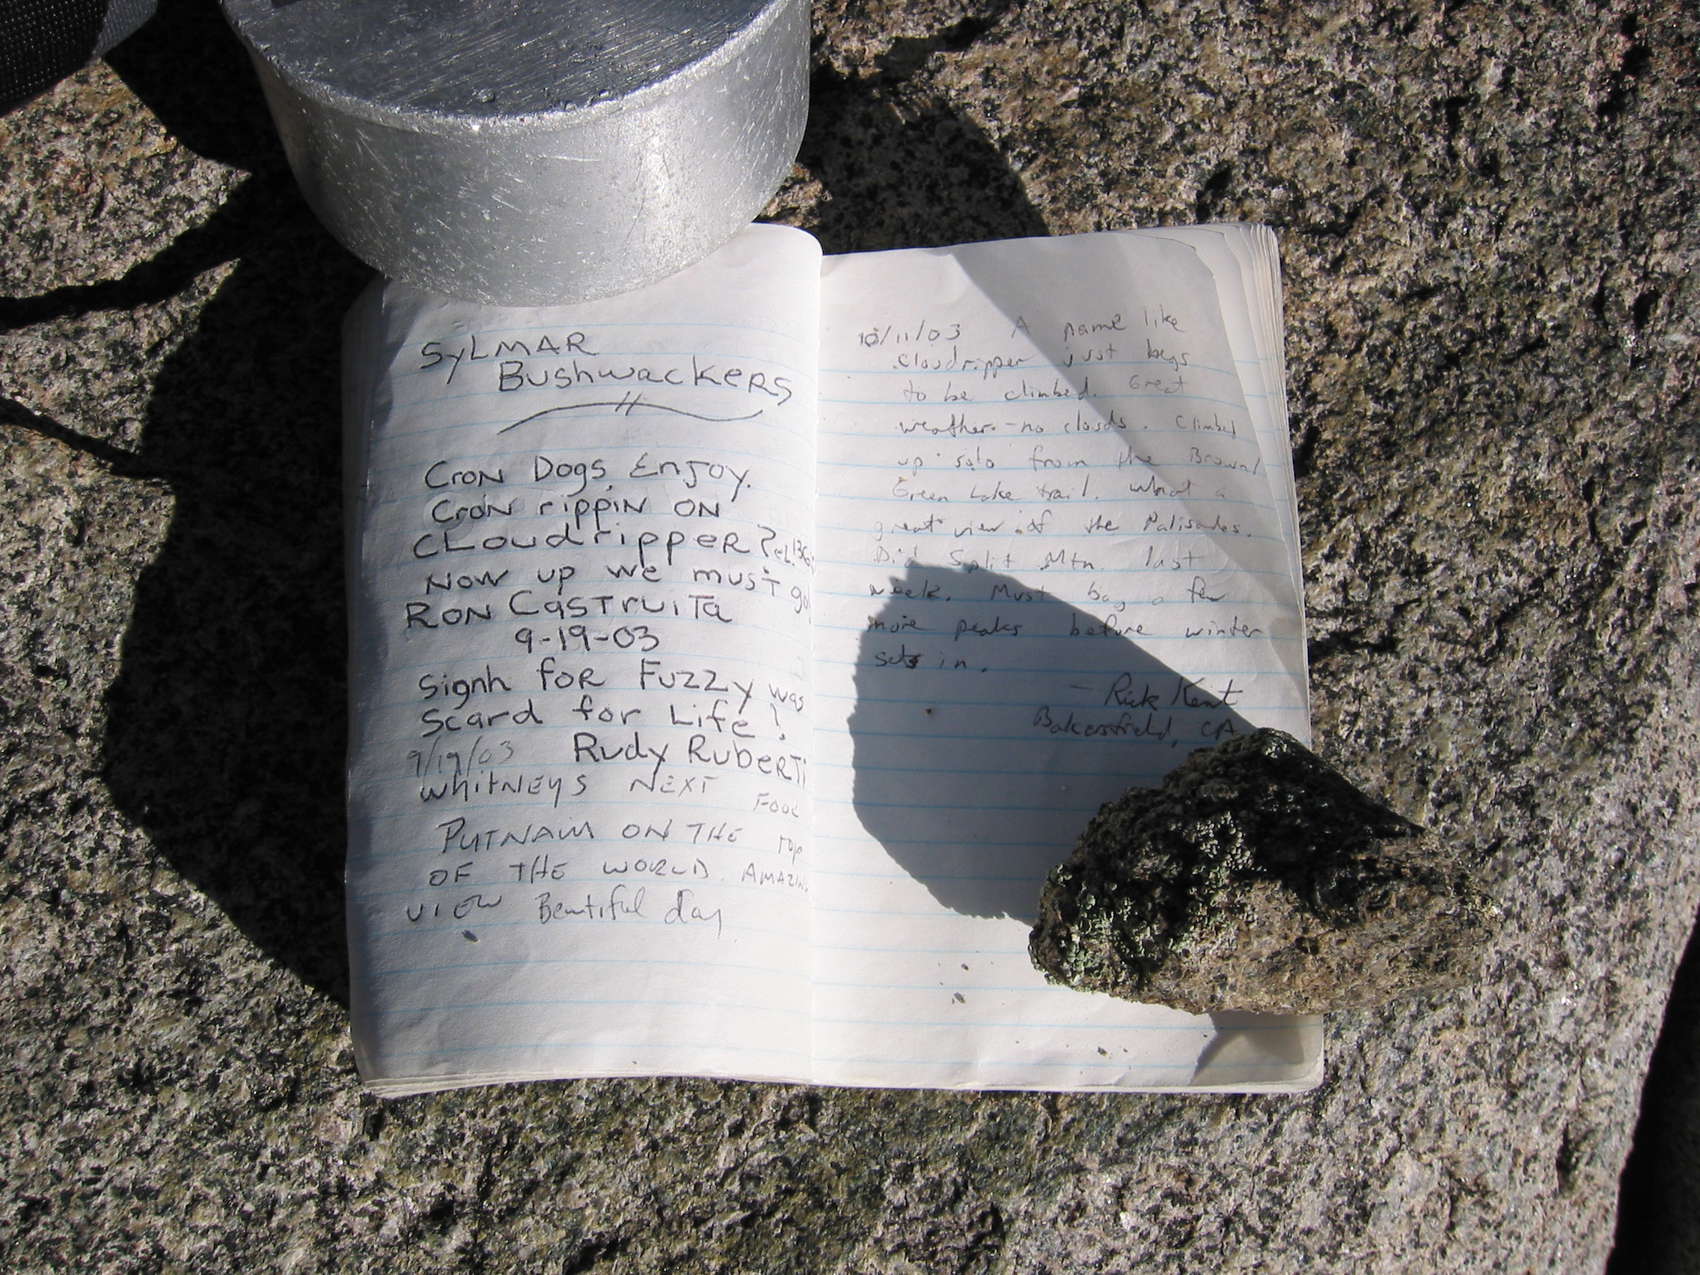 SyLMAR
BushwackeRS
Cron Dogs Enjoy.
Cron rippin on
CLoudrippeR
Now up we must go
Ron Castruita
9-19-03
Signh for Fuzzy was
Scard for Life!
9/19/03 Rudy Ruberti
Whitneys Next
Putnam on the top
of the world. Amazing
view Beautiful day
10/11/03 A name like
Cloudripper just begs
to be climbed. Great
weather - no clouds. Climbed
up solo from the Brown/
Green Lake trail. What a
great view of the Palisades.
Did Split Mtn. last
week. Must bag a few
more peaks before winter
sets in.
- Rick Kent
Bakersfield, CA